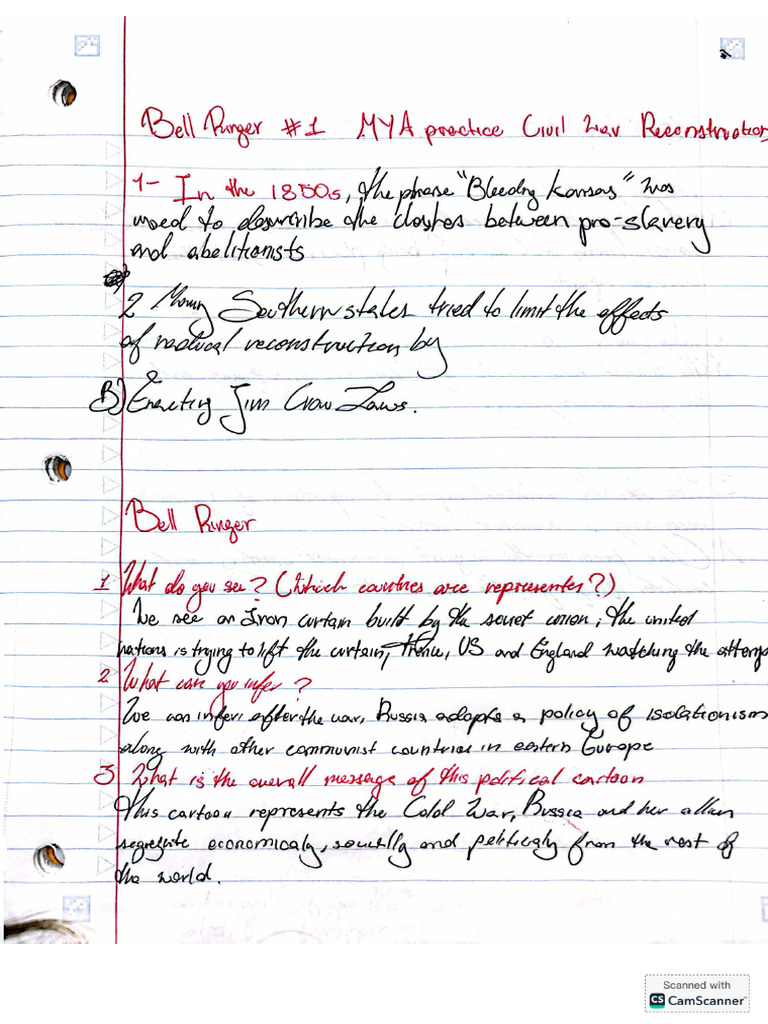 Bell Ringer #1 MYA practice Civil War Reconstruction
1- In the 1850s, the phrase "Bleeding Kansas" was
used to describe the clashes between pro-slavery
and abolitionists
2 Many Southern states tried to limit the effects
of radical reconstruction by
B) Enacting Jim Crow Laws.
Bell Ringer
1 What do you see? (Which countries are represented?)
We see an Iron curtain built by the soviet union, the united
nations is trying to lift the curtain, US and England watching the
2 What can you infer?
We can infer, after the war, Russia adopts a policy of isolationism
along with other communist countries in eastern Europe
3 What is the overall message of this political cartoon
This cartoon represents the Cold War, Russia and her allies
segregate economicaly, socially and politicaly from the rest of
the world.
Scanned with
CS CamScanner